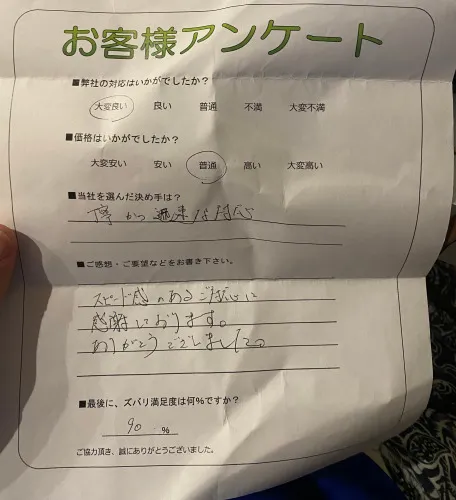 お客様アンケート
■弊社の対応はいかがでしたか？
大変良い 良い 普通 不満 大変不満
■価格はいかがでしたか？
大変安い 安い 普通 高い 大変高い
■当社を選んだ決め手は？
丁寧かつ 迅速な対応
■ご感想・ご要望などをお書き下さい。
スピード感のあるご対応に
感謝しております。
ありがとうございました。
■最後に、ズバリ満足度は何%ですか？
90 %
ご協力頂き、誠にありがとうございました。